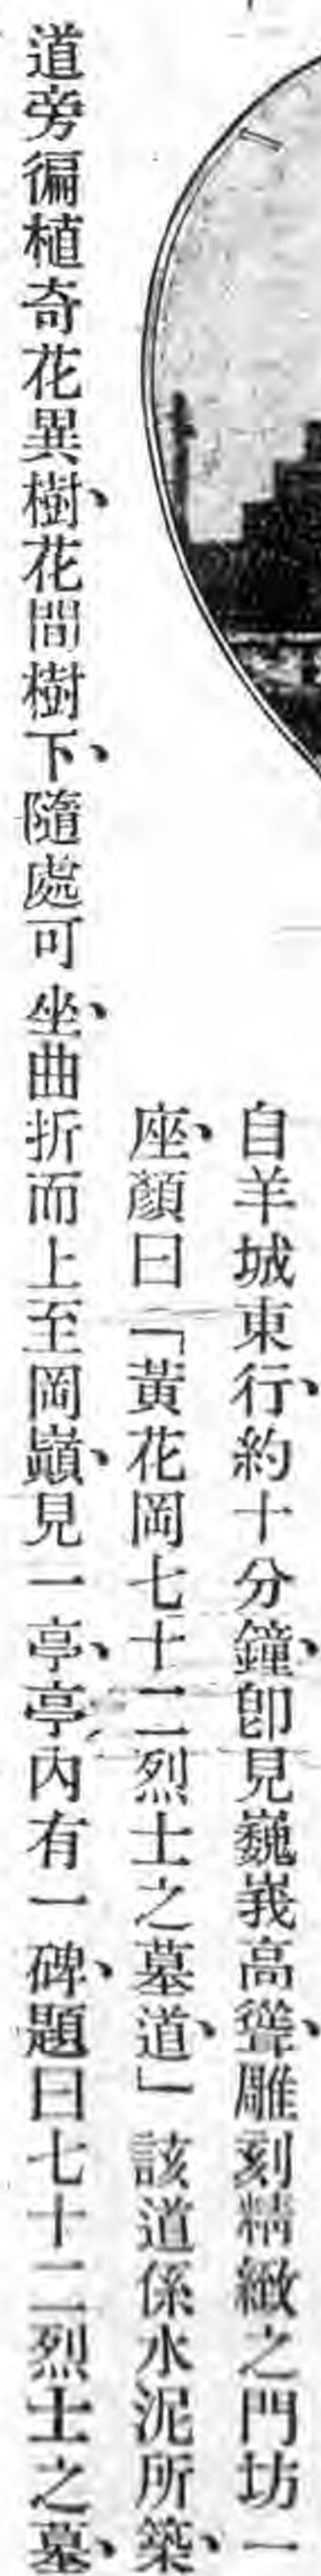 自羊城東行、約十分鐘、卽見巍峩高聳、雕刻精緻之門坊一
座、顏曰「黃花岡七十二烈士之墓道、」該道係水泥所築、
道旁徧植奇花異樹、花間樹下、隨處可坐、曲折而上至岡巓、見一亭、亭內有一碑、題曰七十二烈士之墓、